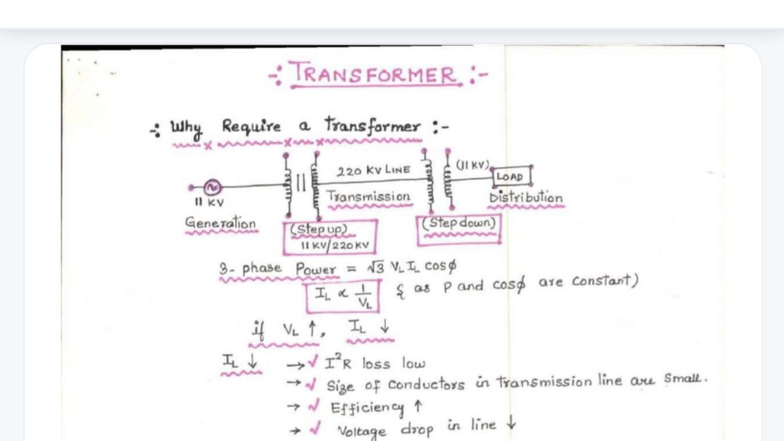 -: TRANSFORMER :-
-: Why Require a transformer :-
11 KV
Generation
(Step up)
11 KV/220 KV
220 KV LINE
Transmission
(Step down)
(11 KV)
LOAD
Distribution
3-phase Power = √3 VL IL cosϕ
IL ∝ 1/VL { as P and cosϕ are constant)
if VL ↑, IL ↓
IL ↓ → ✓ I²R loss low
→ ✓ Size of conductors in transmission line are small.
→ ✓ Efficiency ↑
→ ✓ Voltage drop in line ↓